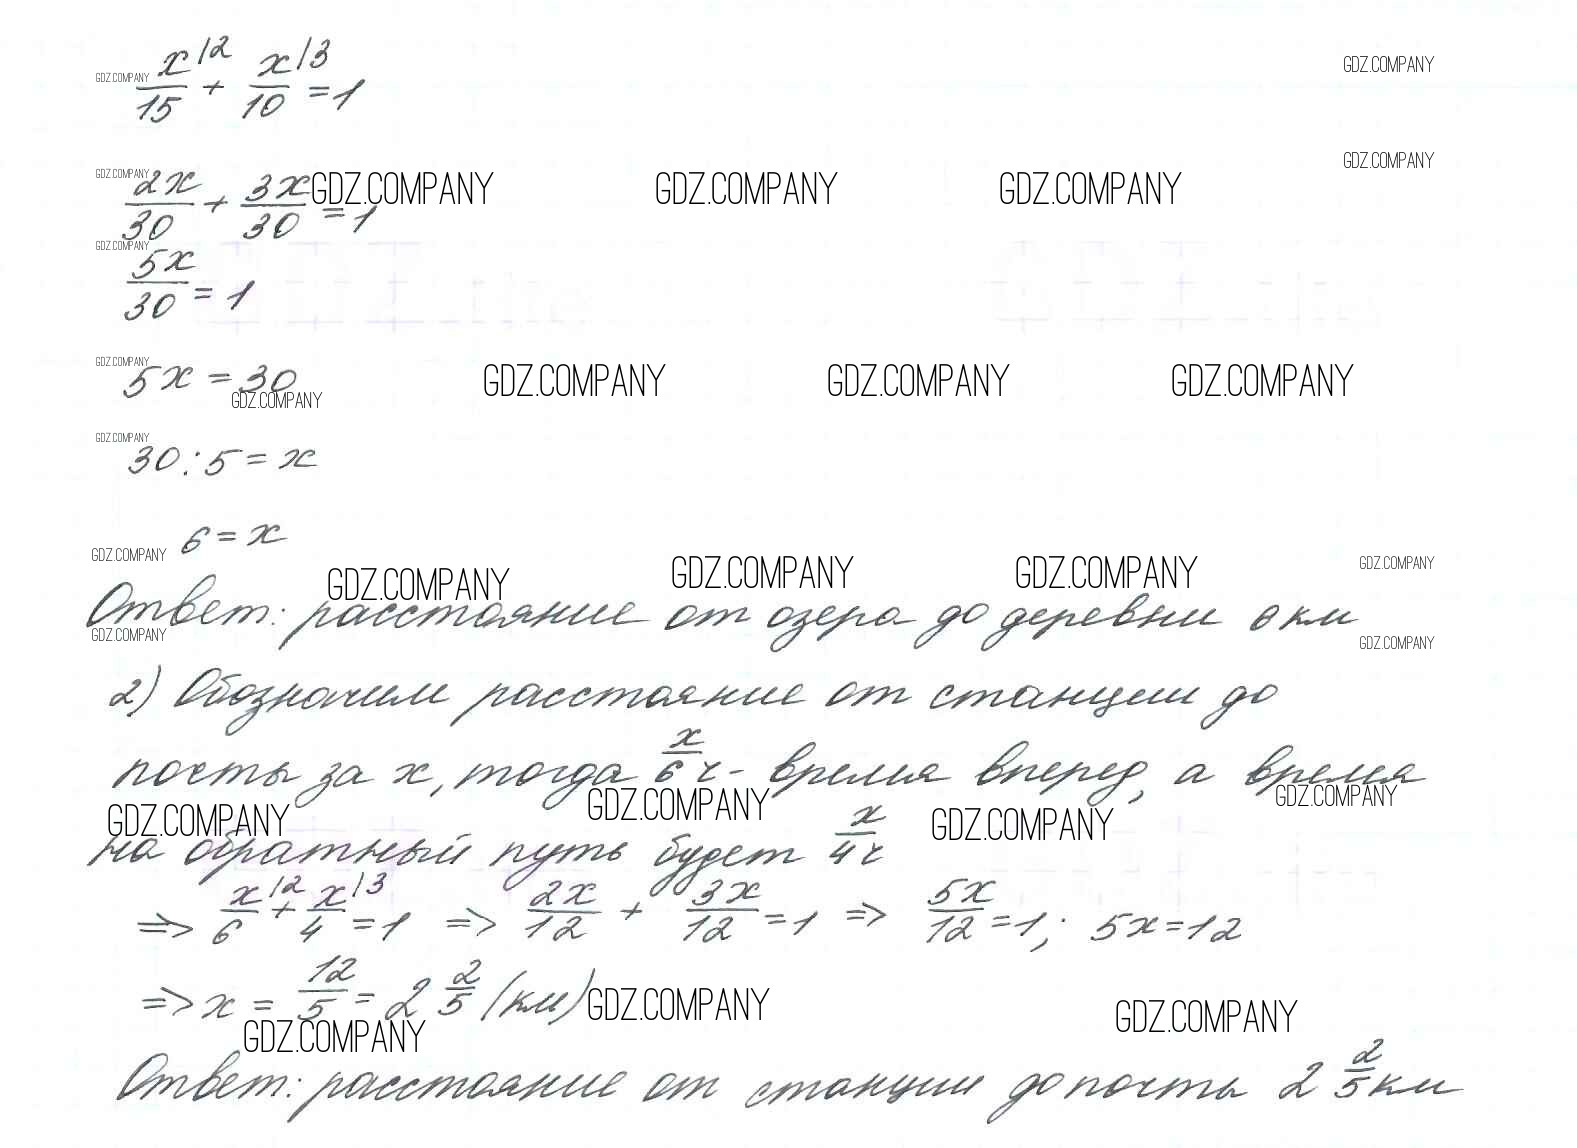 x|2/15 + x|3/10 = 1
GDZ.COMPANY GDZ.COMPANY
GDZ.COMPANY GDZ.COMPANY
2x/30 + 3x/30 = 1
GDZ.COMPANY GDZ.COMPANY GDZ.COMPANY
GDZ.COMPANY
5x/30 = 1
GDZ.COMPANY
5x = 30
GDZ.COMPANY GDZ.COMPANY GDZ.COMPANY
GDZ.COMPANY
GDZ.COMPANY
30 : 5 = x
6 = x
GDZ.COMPANY GDZ.COMPANY GDZ.COMPANY GDZ.COMPANY GDZ.COMPANY
Ответ: расстояние от озера до деревни 6 км
GDZ.COMPANY GDZ.COMPANY
2) Обозначим расстояние от станции до
почты за x, тогда x/6 ч - время вперед, а время
GDZ.COMPANY GDZ.COMPANY GDZ.COMPANY GDZ.COMPANY
на обратный путь будет x/4 ч
=> x|2/6 + x|3/4 = 1 => 2x/12 + 3x/12 = 1 => 5x/12 = 1; 5x = 12
=> x = 12/5 = 2 2/5 (км)
GDZ.COMPANY GDZ.COMPANY
GDZ.COMPANY
Ответ: расстояние от станции до почты 2 2/5 км